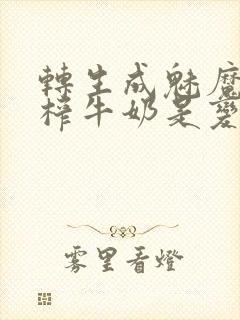 轉生成魅魔
榨牛奶是變
雾里看燈